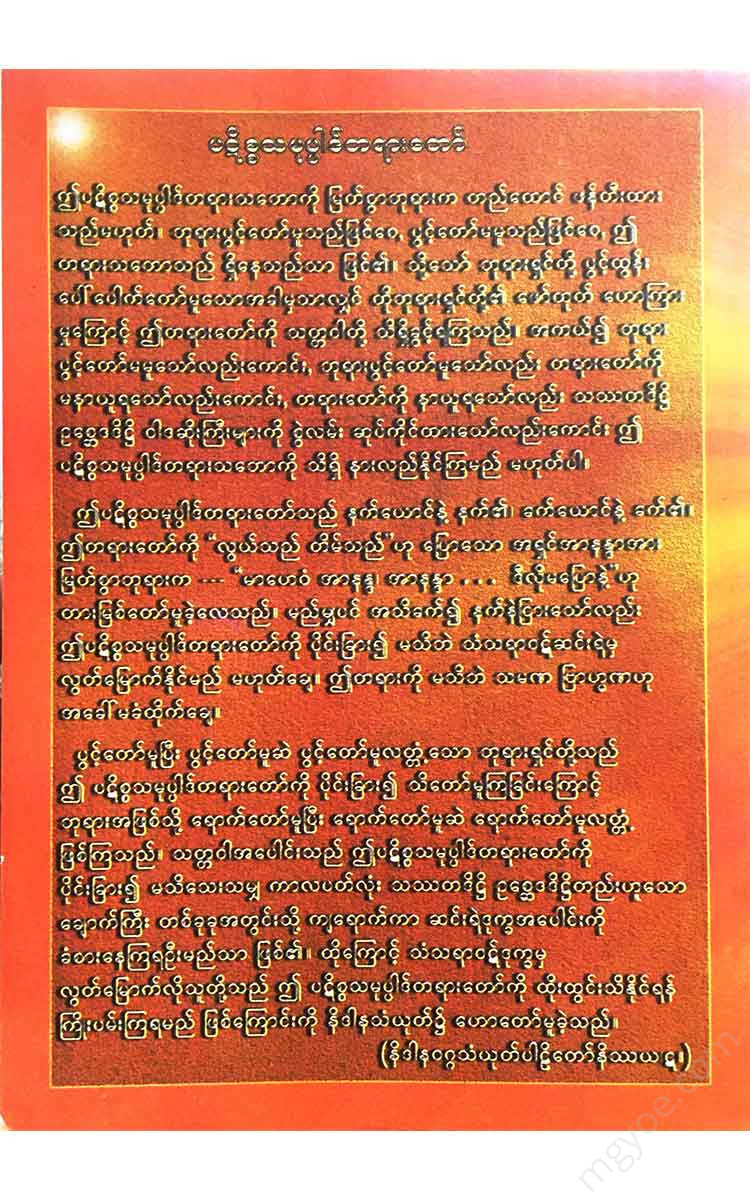 ပဋိစ္စသမုပ္ပါဒ်တရားတော်
ဤပဋိစ္စသမုပ္ပါဒ်တရားသဘောကို မြတ်စွာဘုရားက တည်ထောင် ဖန်တီးထား
သည်မဟုတ်။ ဘုရားပွင့်တော်မူသည်ဖြစ်စေ, ပွင့်တော်မမူသည်ဖြစ်စေ, ဤ
တရားသဘောသည် ရှိနေသည်သာ ဖြစ်၏။ သို့သော် ဘုရားရှင်တို့ ပွင့်ထွန်း
ပေါ်ပေါက်တော်မူသောအခါမှသာလျှင် ထိုဘုရားရှင်တို့၏ ဖော်ထုတ် ဟောကြား
မှုကြောင့် ဤတရားတော်ကို သတ္တဝါတို့ သိရှိခွင့်ရကြသည်။ အကယ်၍ ဘုရား
ပွင့်တော်မမူသော်လည်းကောင်း, ဘုရားပွင့်တော်မူသော်လည်း တရားတော်ကို
မနာယူရသော်လည်းကောင်း, တရားတော်ကို နာယူရသော်လည်း သဿတဒိဋ္ဌိ
ဥစ္ဆေဒဒိဋ္ဌိ ဝါဒဆိုးကြီးများကို စွဲလမ်း ဆုပ်ကိုင်ထားသော်လည်းကောင်း ဤ
ပဋိစ္စသမုပ္ပါဒ်တရားသဘောကို သိရှိ နားလည်နိုင်ကြမည် မဟုတ်ပါ။
ဤပဋိစ္စသမုပ္ပါဒ်တရားတော်သည် နက်ယောင်နဲ့ နက်၏၊ ခက်ယောင်နဲ့ ခက်၏။
ဤတရားတော်ကို “လွယ်သည် တိမ်သည်”ဟု ပြောသော အရှင်အာနန္ဒာအား
မြတ်စွာဘုရားက --- “မာဟေဝံ အာနန္ဒ၊ အာနန္ဒာ . . . ဒီလိုမပြောနဲ့”ဟု
တားမြစ်တော်မူခဲ့လေသည်။ မည်မျှပင် အသိခက်၍ နက်နဲငြားသော်လည်း
ဤပဋိစ္စသမုပ္ပါဒ်တရားတော်ကို ပိုင်းခြား၍ မသိဘဲ သံသရာဝဋ်ဆင်းရဲမှ
လွတ်မြောက်နိုင်မည် မဟုတ်ချေ။ ဤတရားကို မသိဘဲ သမဏ ဗြာဟ္မဏဟု
အခေါ်မခံထိုက်ချေ။
ပွင့်တော်မူပြီး ပွင့်တော်မူဆဲ ပွင့်တော်မူလတ္တံ့သော ဘုရားရှင်တို့သည်
ဤ ပဋိစ္စသမုပ္ပါဒ်တရားတော်ကို ပိုင်းခြား၍ သိတော်မူကြခြင်းကြောင့်
ဘုရားအဖြစ်သို့ ရောက်တော်မူပြီး ရောက်တော်မူဆဲ ရောက်တော်မူလတ္တံ့
ဖြစ်ကြသည်။ သတ္တဝါအပေါင်းသည် ဤပဋိစ္စသမုပ္ပါဒ်တရားတော်ကို
ပိုင်းခြား၍ မသိသေးသမျှ ကာလပတ်လုံး သဿတဒိဋ္ဌိ ဥစ္ဆေဒဒိဋ္ဌိတည်းဟူသော
ချောက်ကြီး တစ်ခုခုအတွင်းသို့ ကျရောက်ကာ ဆင်းရဲဒုက္ခအပေါင်းကို
ခံစားနေကြရဦးမည်သာ ဖြစ်၏။ ထို့ကြောင့် သံသရာဝဋ်ဒုက္ခမှ
လွတ်မြောက်လိုသူတို့သည် ဤ ပဋိစ္စသမုပ္ပါဒ်တရားတော်ကို ထိုးထွင်းသိနိုင်ရန်
ကြိုးပမ်းကြရမည် ဖြစ်ကြောင်းကို နိဒါနသံယုတ်၌ ဟောတော်မူခဲ့သည်။
(နိဒါနဝဂ္ဂသံယုတ်ပါဠိတော်နိဿယ ဋ္ဌ။)
mgype.com